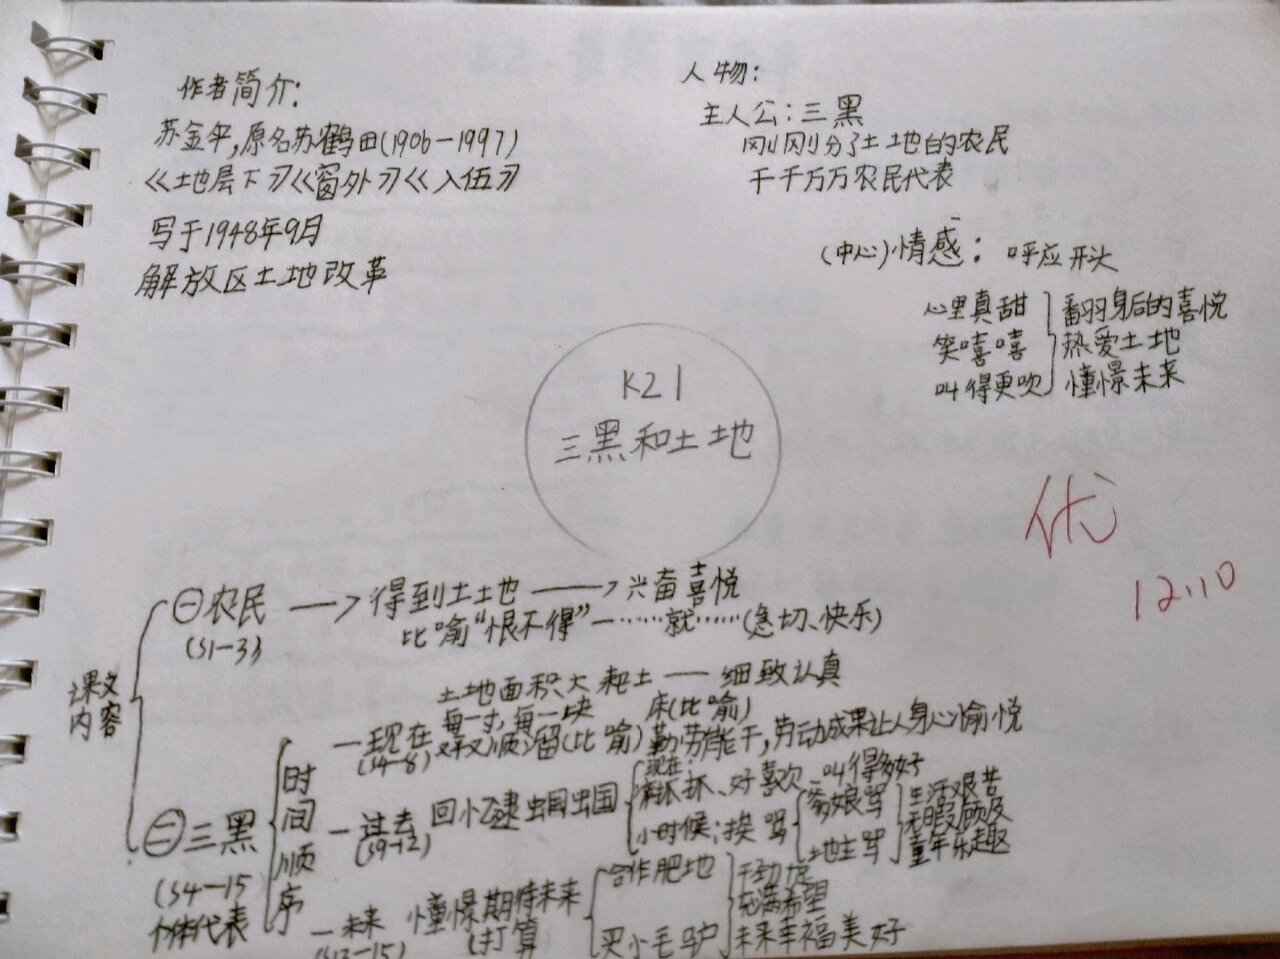 作者简介:
苏金伞,原名苏鹤田(1906-1997)
《土地层下》《窗外》《入伍》
写于1948年9月
解放区土地改革
人物:
主人公:三黑
刚刚分了土地的农民
千千万万农民代表
(中心)情感: 呼应开头
心里真甜 翻身后的喜悦
笑嘻嘻 热爱土地
叫得更欢 憧憬未来
K21
三黑和土地
优
12.10
课文内容
㊀农民 → 得到土地 → 兴奋喜悦
(S1-3) 比喻"恨不得"-……就……(急切、快乐)
土地面积大 耙土 — 细致认真
每一寸,每一块 床(比喻)
一现在 又平又顺溜(比喻)勤劳能干,劳动成果让人身心愉悦
(S4-8)
㊁三黑
(S4-15
个体代表
时间顺序
一过去 回忆逮蝈蝈
(S9-12)
现在:
抓、好喜欢、叫得多好
小时候:挨骂
爹娘骂 生活艰苦
地主骂 无暇顾及
童年乐趣
一未来 憧憬期待未来
(S13-15) (打算
合作肥地 干劲足
充满希望
买小毛驴 未来幸福美好